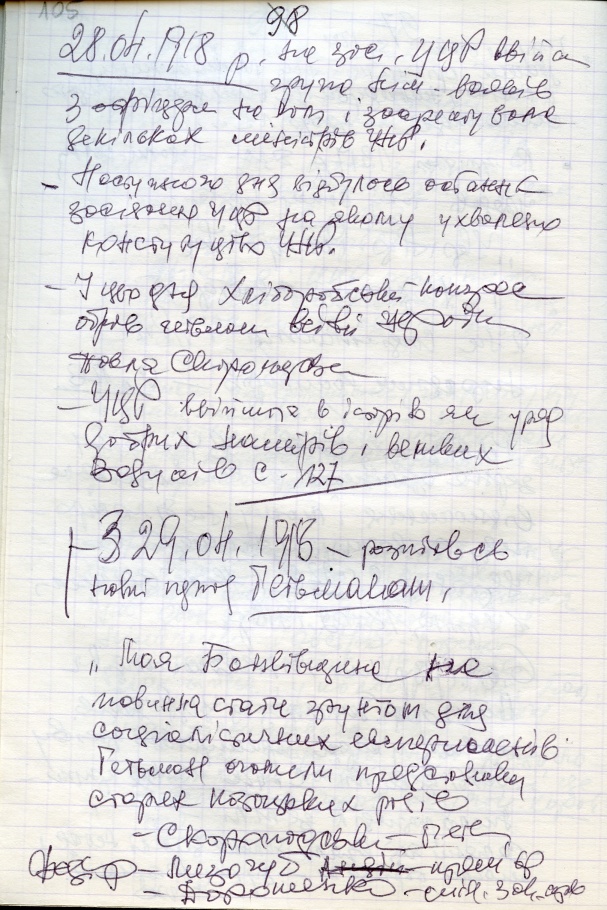 98
105
28.04.1918 р. На зас. УЦР ввійш
група нім. вояків
з офіцером на чолі і заарештувала
декількох міністрів УНР.
- Наступного дня відбулося останнє
засідання УЦР на якому ухвалено
конституцію УНР.
- У цьо дня Хліборобський конгрес
обрав гетьмана всієї
Павла Скоропадськ
- УЦР ввійшла в історію як уряд
добрих намірів і великих
с - 127
- З 29.04.1918 - розпочавсь
новий період Гетьманат.
„Моя Батьківщина не
повинна стати грунтом для
соціалістичних експериментів
Гетьман очолили представники
старих козацьких родів
- Скоропадські - гет
- Лизогуб - прем'єр
- Дорошенко - мін. зак. справ